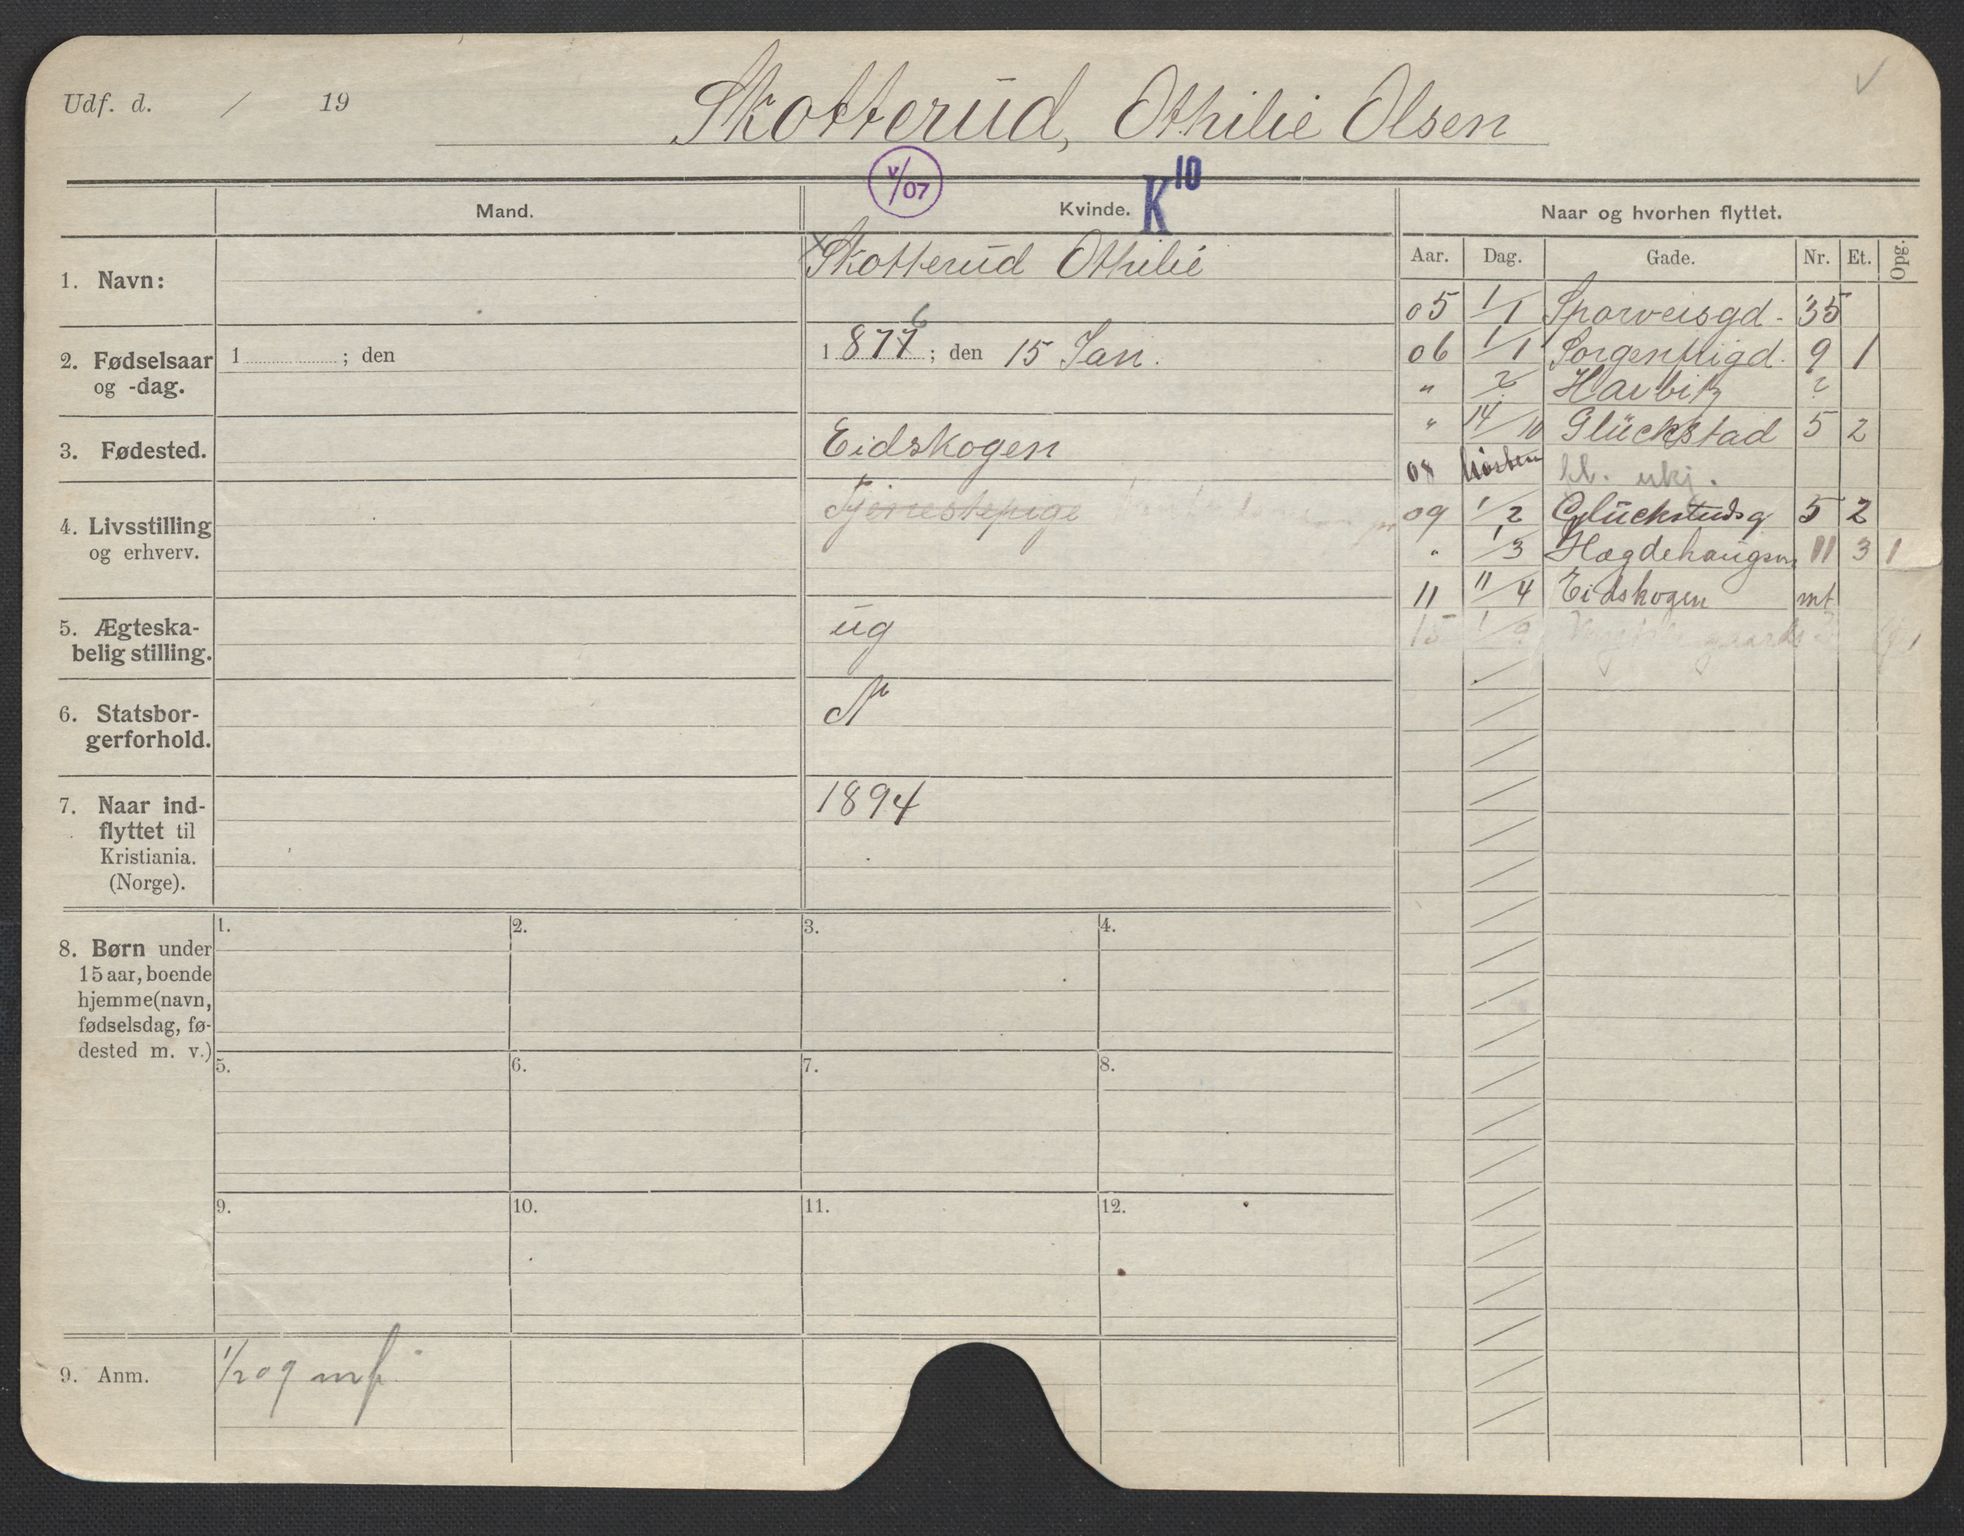 Udf. d. / 19
Skotterud, Othilie Olsen
v/07
K 10
Mand.
Kvinde.
Naar og hvorhen flyttet.
Aar. Dag. Gade. Nr. Et. Opg.
1. Navn:
x Skotterud Othilie
2. Fødselsaar
og -dag.
1 ; den
1877 6 ; den 15 Jan.
3. Fødested.
Eidskogen
4. Livsstilling
og erhverv.
Tjenestepige
5. Ægteska-
belig stilling.
ug
6. Statsbor-
gerforhold.
N
7. Naar ind-
flyttet til
Kristiania.
(Norge).
1894
05 1/1 Sporveisgd. 35
06 1/1 Sorgenfrigd. 9 1
" ? Harbitz ?
" 14/10 Glückstad 5 2
08 høsten fl. ukj.
09 1/2 Glückstadsg 5 2
" 1/3 Hægdehaugsv. 11 3 1
11 11/4 Eidskogen mt
15 1/9
8. Børn under
15 aar, boende
hjemme (navn,
fødselsdag, fø-
dested m. v.)
1. 2. 3. 4.
5. 6. 7. 8.
9. 10. 11. 12.
9. Anm.
1/2 09 mf